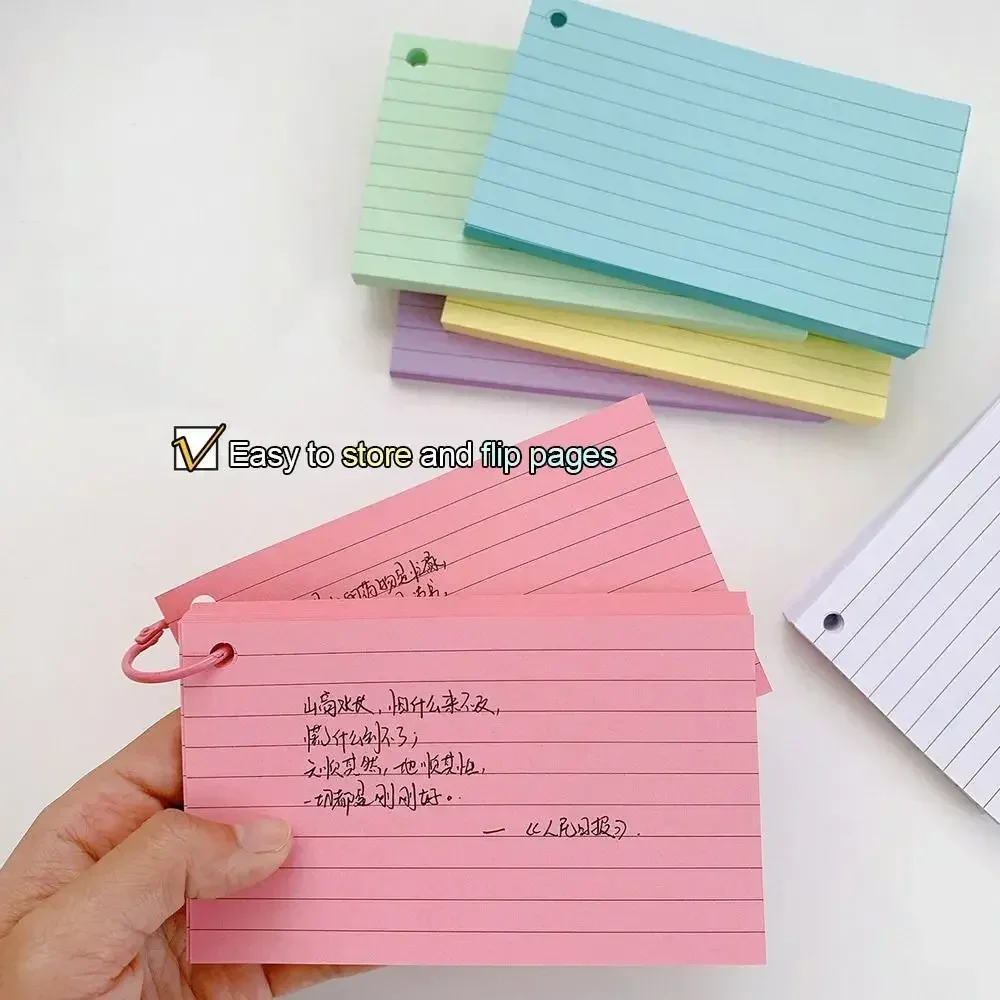 Easy to store and flip pages
山高水长,怕什么来不及,
慌什么到不了;
天顺其然,地顺其性,
一切都是刚刚好。
— 《人民日报》.